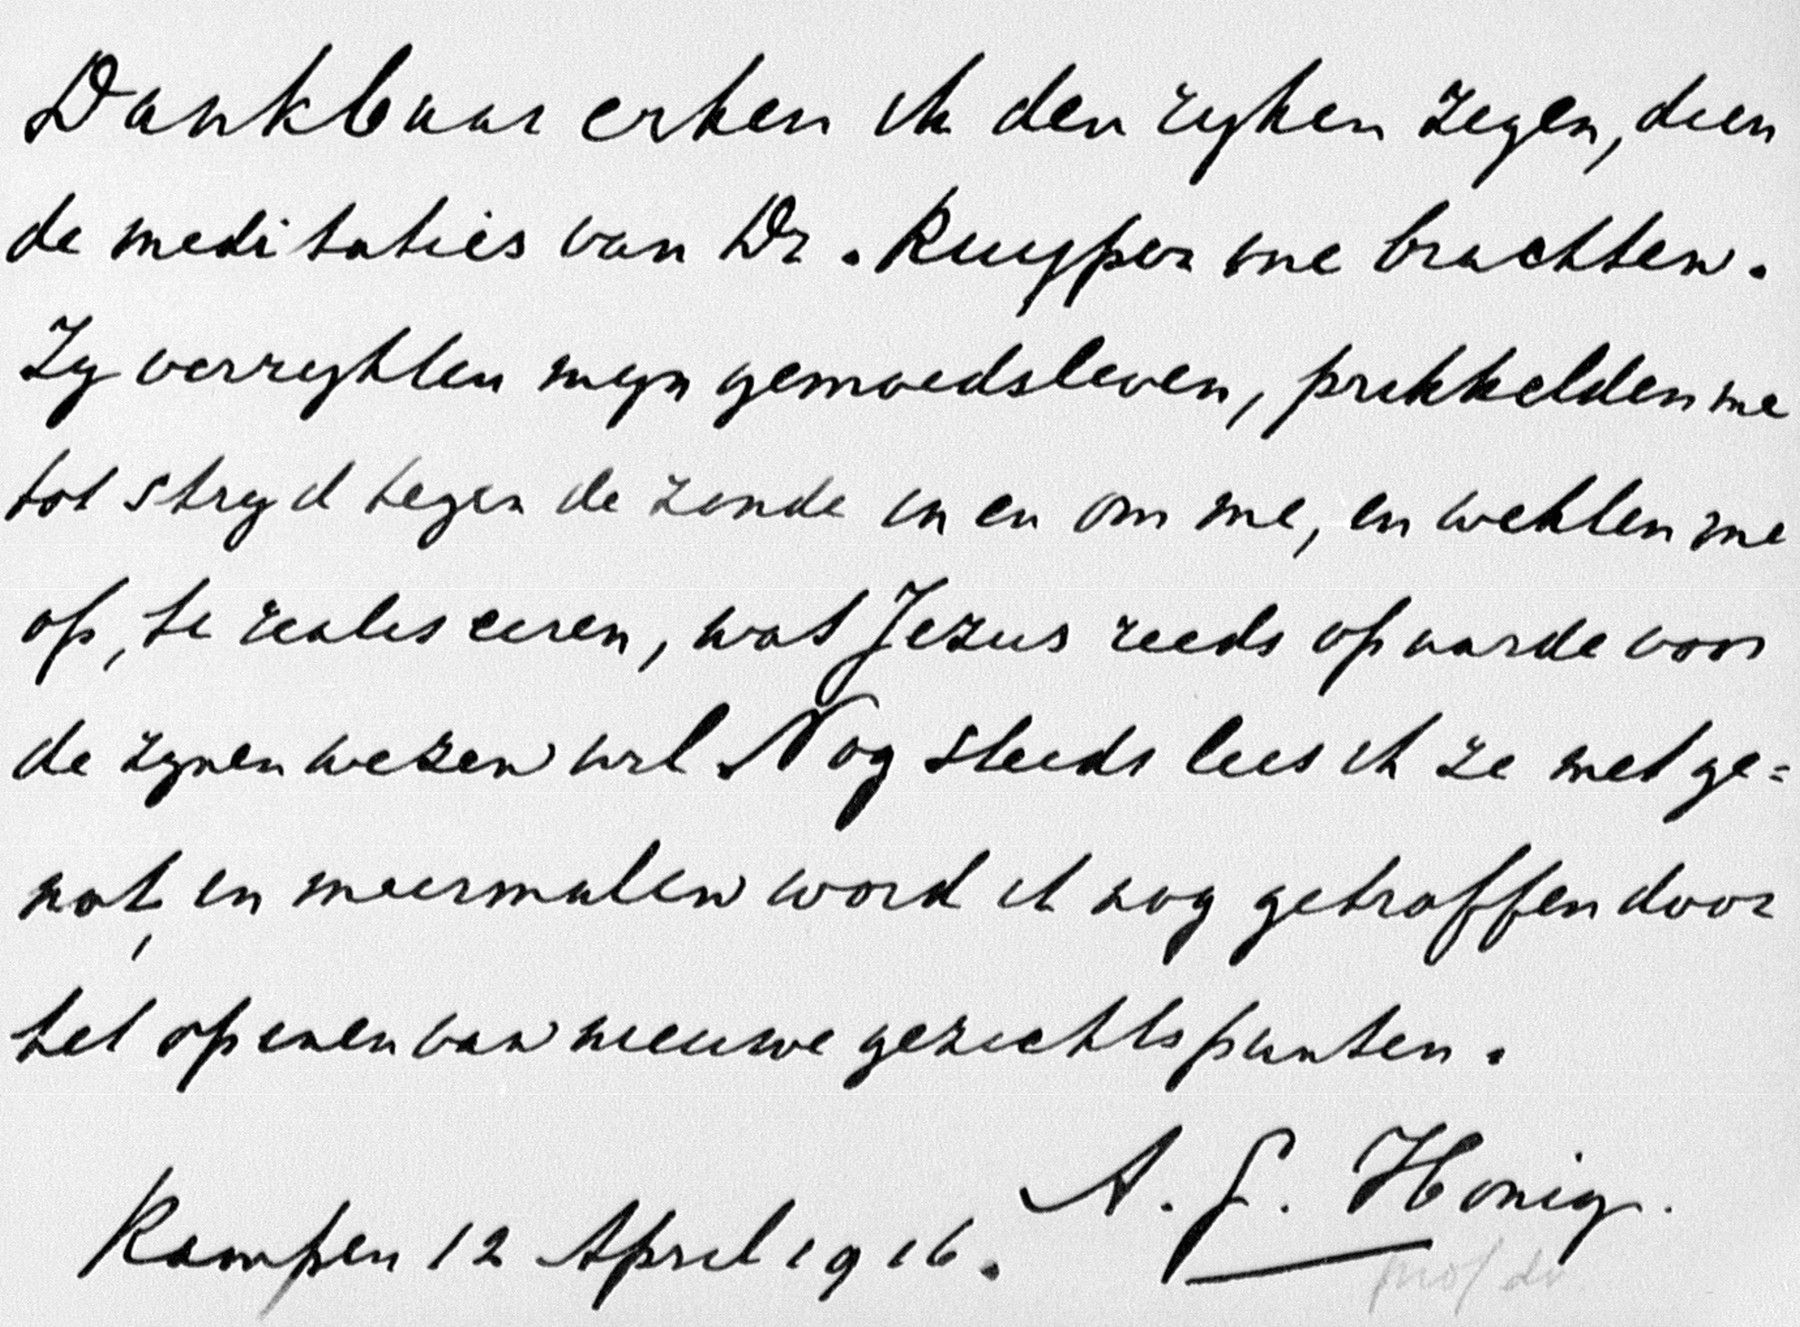 Dankbaar erken ik den rijken zegen, dien
de meditaties van Dr. Kuyper me brachten.
Zij verrijkten mijn gemoedsleven, prikkelden me
tot strijd tegen de zonde in en om me, en wekten me
op, te realiseeren, wat Jezus reeds op aarde voor
de zijnen wezen wil. Nog steeds lees ik ze met ge=
not, en meermalen word ik nog getroffen door
het openen van nieuwe gezichtspunten.
A. G. Honig.
Kampen 12 April 1916.
prof dr